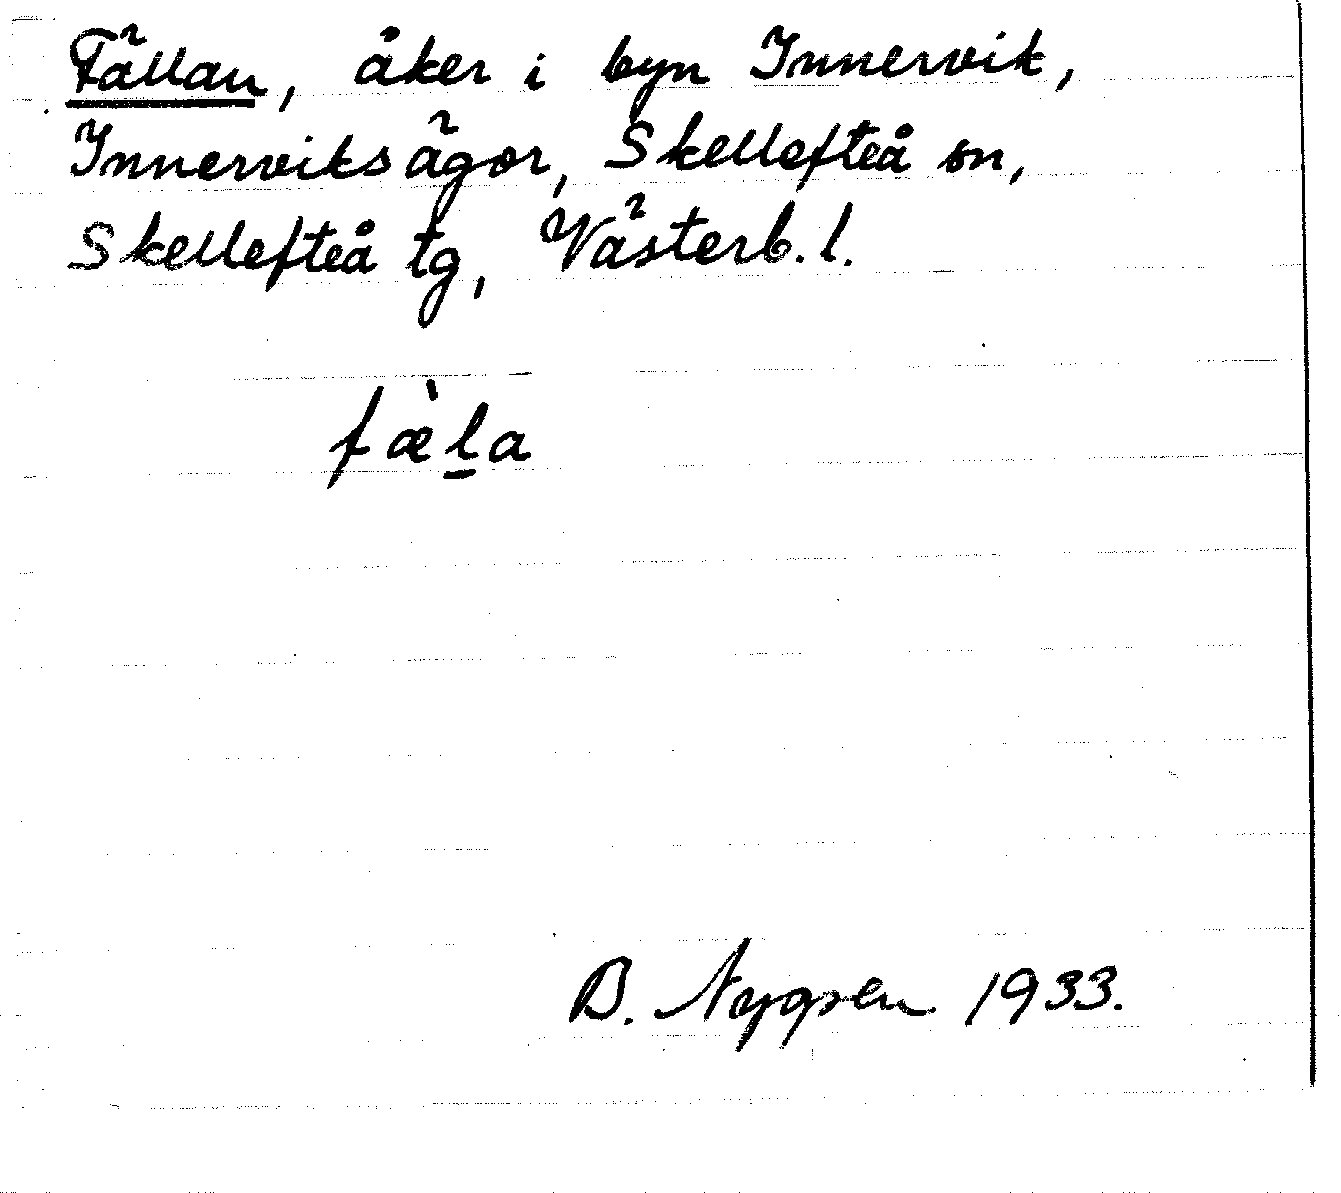 Fällan, åker i byn Innervik,
Innerviksägor, Skellefteå sn,
Skellefteå tg, Västerb. l.
fæ̀l̠a
B. 1933.